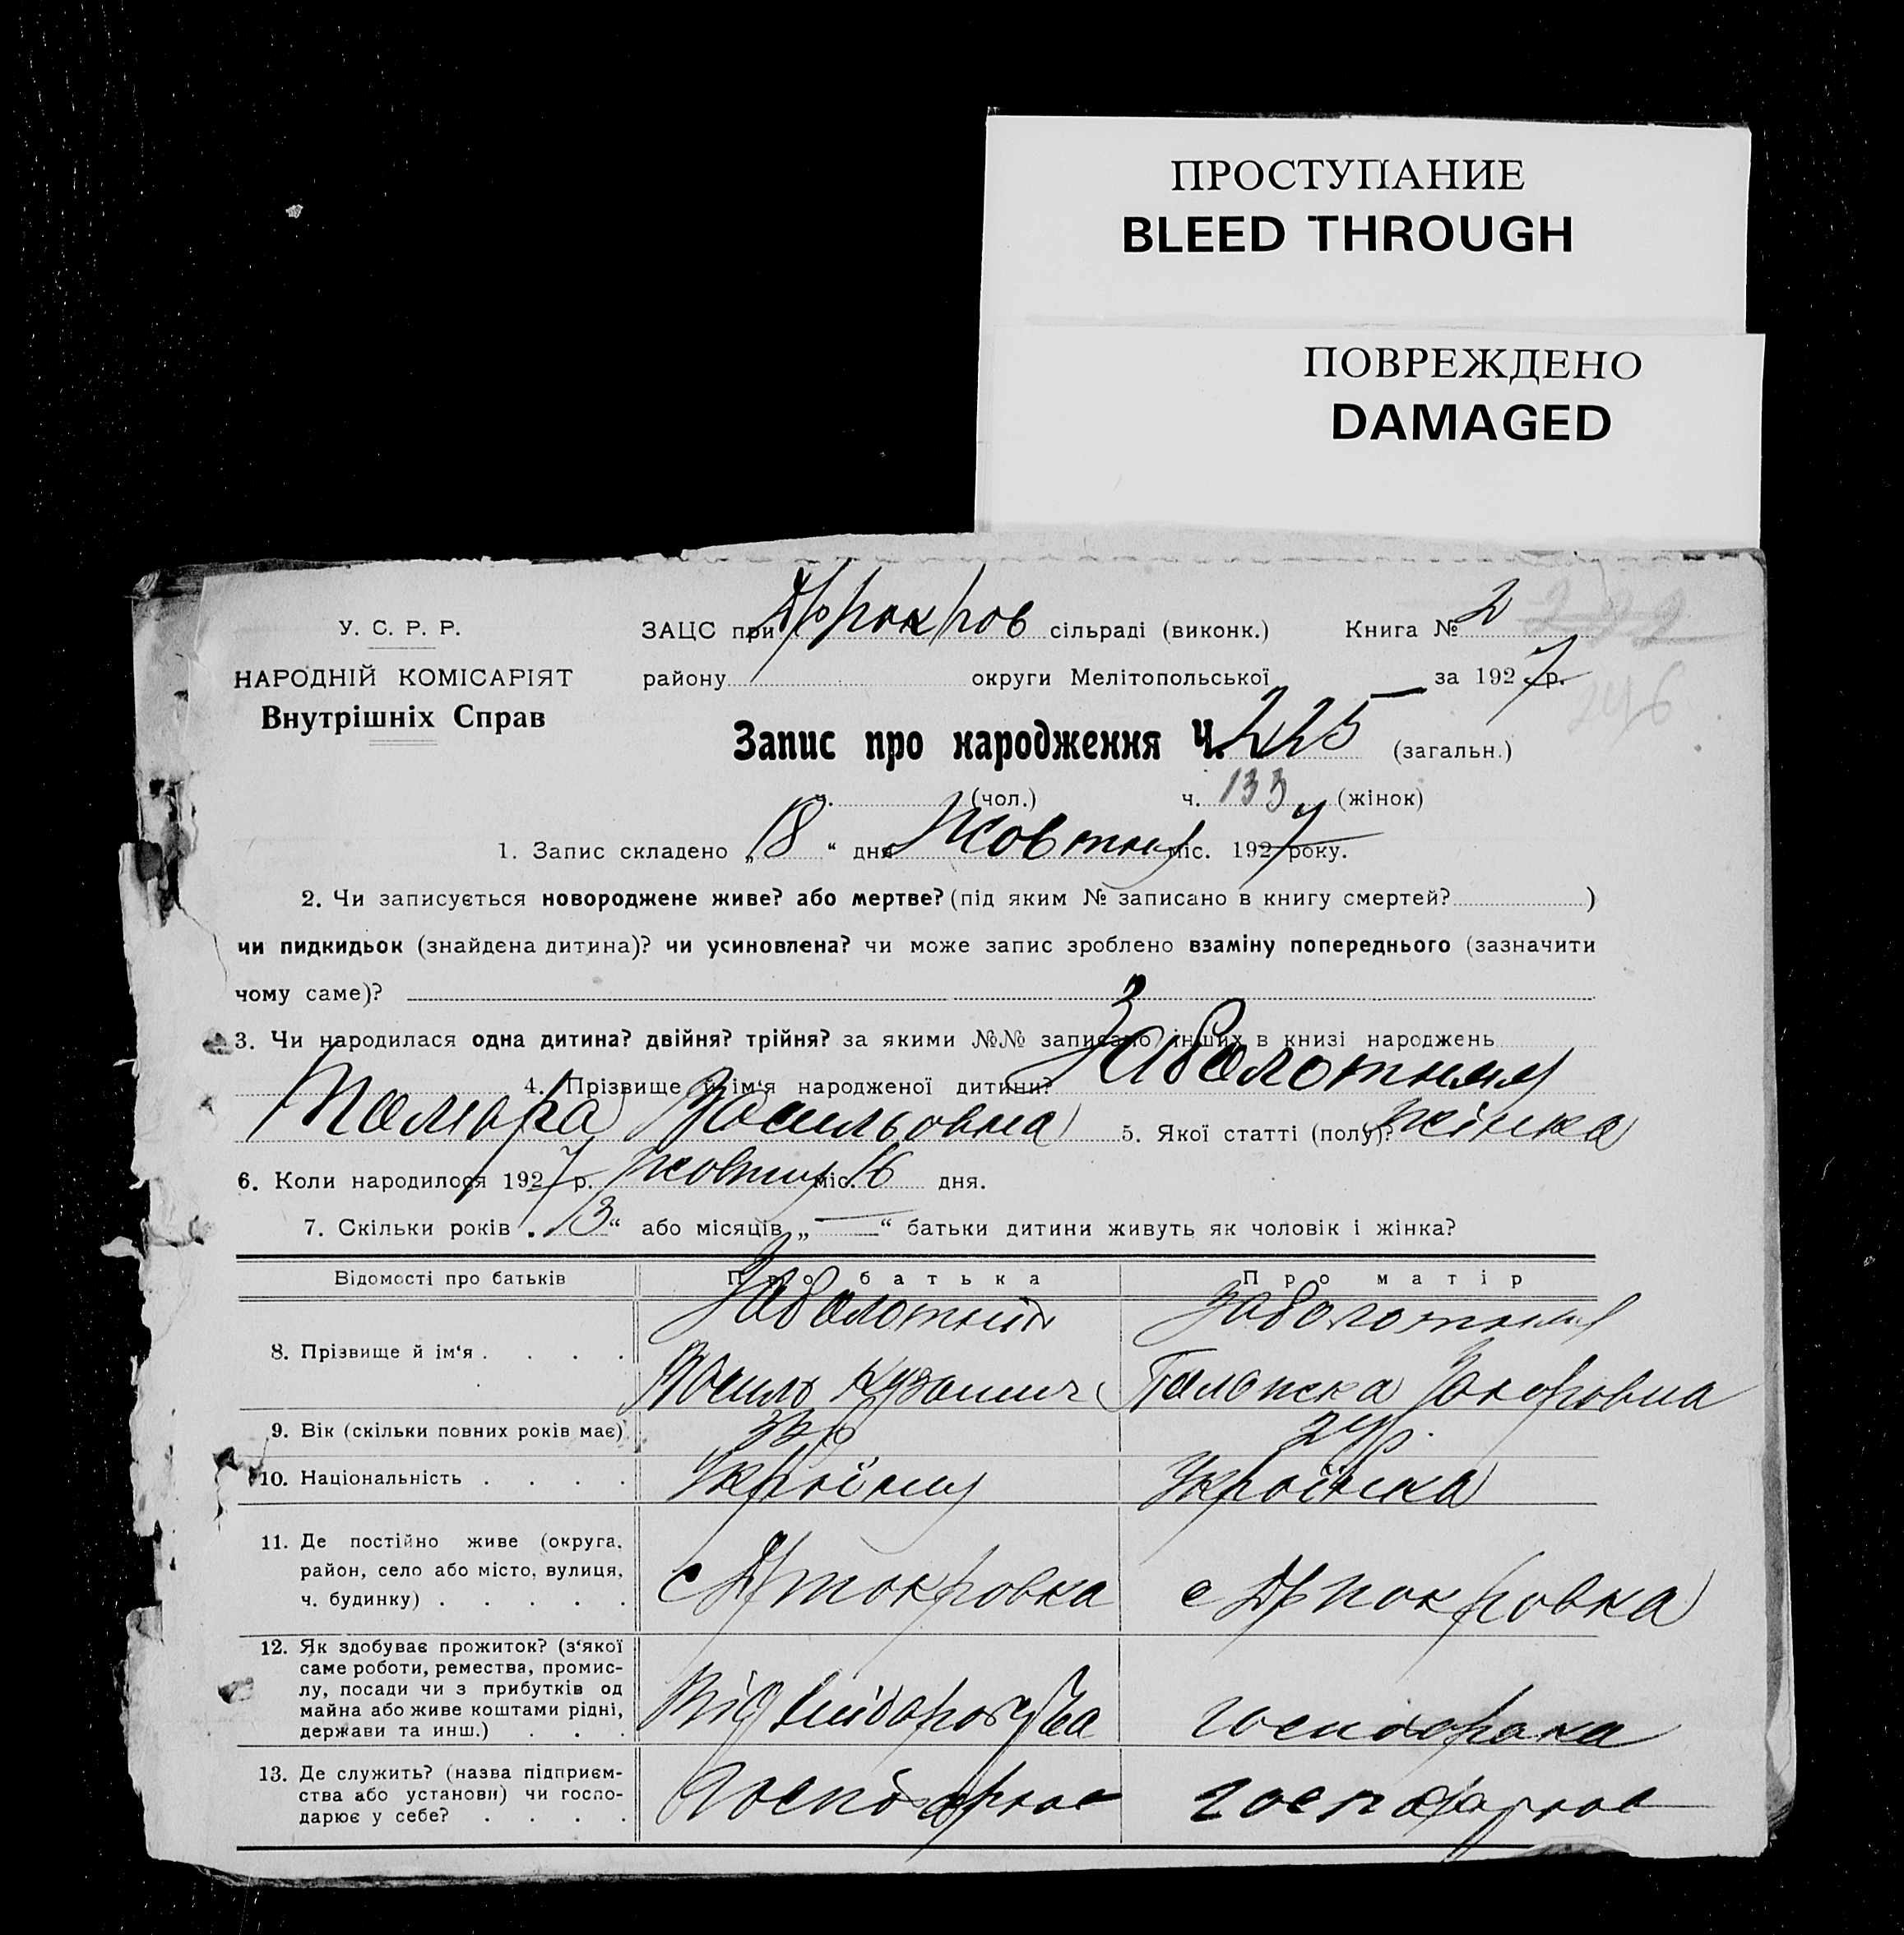 ПРОСТУПАНИЕ
BLEED THROUGH
ПОВРЕЖДЕНО
DAMAGED
У. С. Р. Р.
НАРОДНІЙ КОМІСАРІЯТ
Внутрішніх Справ
ЗАЦС при сільраді (виконк.) Книга № 2 222
району округи Мелітопольської за 1927 р. 246
Запис про народження Ч. 225 (загальн.)
ч. (чол.) ч. 133 (жінок)
1. Запис складено „18“ дня Жовтня міс. 1927 року.
2. Чи записується новороджене живе? або мертве? (під яким № записано в книгу смертей? )
чи пидкидьок (знайдена дитина)? чи усиновлена? чи може запис зроблено взаміну попереднього (зазначити
чому саме)?
3. Чи народилася одна дитина? двійня? трійня? за якими №№ записано інших в книзі народжень
4. Прізвище й ім'я народженої дитини? Заболотная
Тамара Васильовна 5. Якої статті (полу)? жінка
6. Коли народилося 1927 р. жовтня міс. 16 дня.
7. Скільки років „3“ або місяців „—“ батьки дитини живуть як чоловік і жінка?
Відомості про батьків Про батька Про матір
8. Прізвище й ім'я . . . . Заболотний Заболотная
Василь Кузьмич Палажка Захаровна
9. Вік (скільки повних років має) 33р 24р.
10. Національність . . . . Українец Українка
11. Де постійно живе (округа,
район, село або місто, вулиця,
ч. будинку) . . . . . с покровка с покровка
12. Як здобуває прожиток? (з'якої
саме роботи, ремества, промис-
лу, посади чи з прибутків од
майна або живе коштами рідні,
держави та инш.) . . . Від господарка
13. Де служить? (назва підприєм-
ства або установи) чи госпо-
дарює у себе? . . . . Господарює господарює